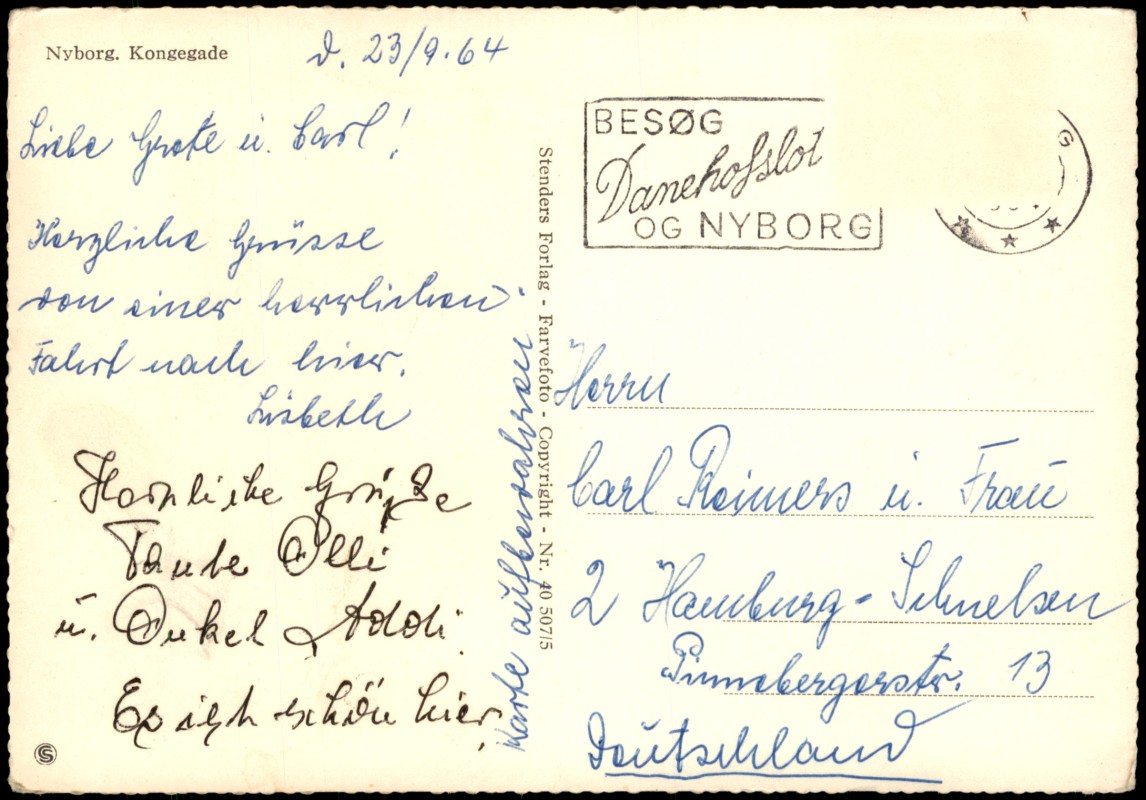 Nyborg. Kongegade
d. 23/9.64
Liebe Grete u. Carl!
Herzliche Grüsse
von einer herrlichen
Fahrt nach hier.
Lisbeth
Herzliche Grüße
Tante Olli
u. Onkel Addi.
Es ist schön hier.
Karte aufbewahren
Stenders Forlag - Farvefoto - Copyright - Nr. 40 507/5
BESØG
Danehofslot
OG NYBORG
G
Herrn
Carl Reimers u. Frau
2 Hamburg-Schnelsen
Pinnebergerstr. 13
Deutschland
S